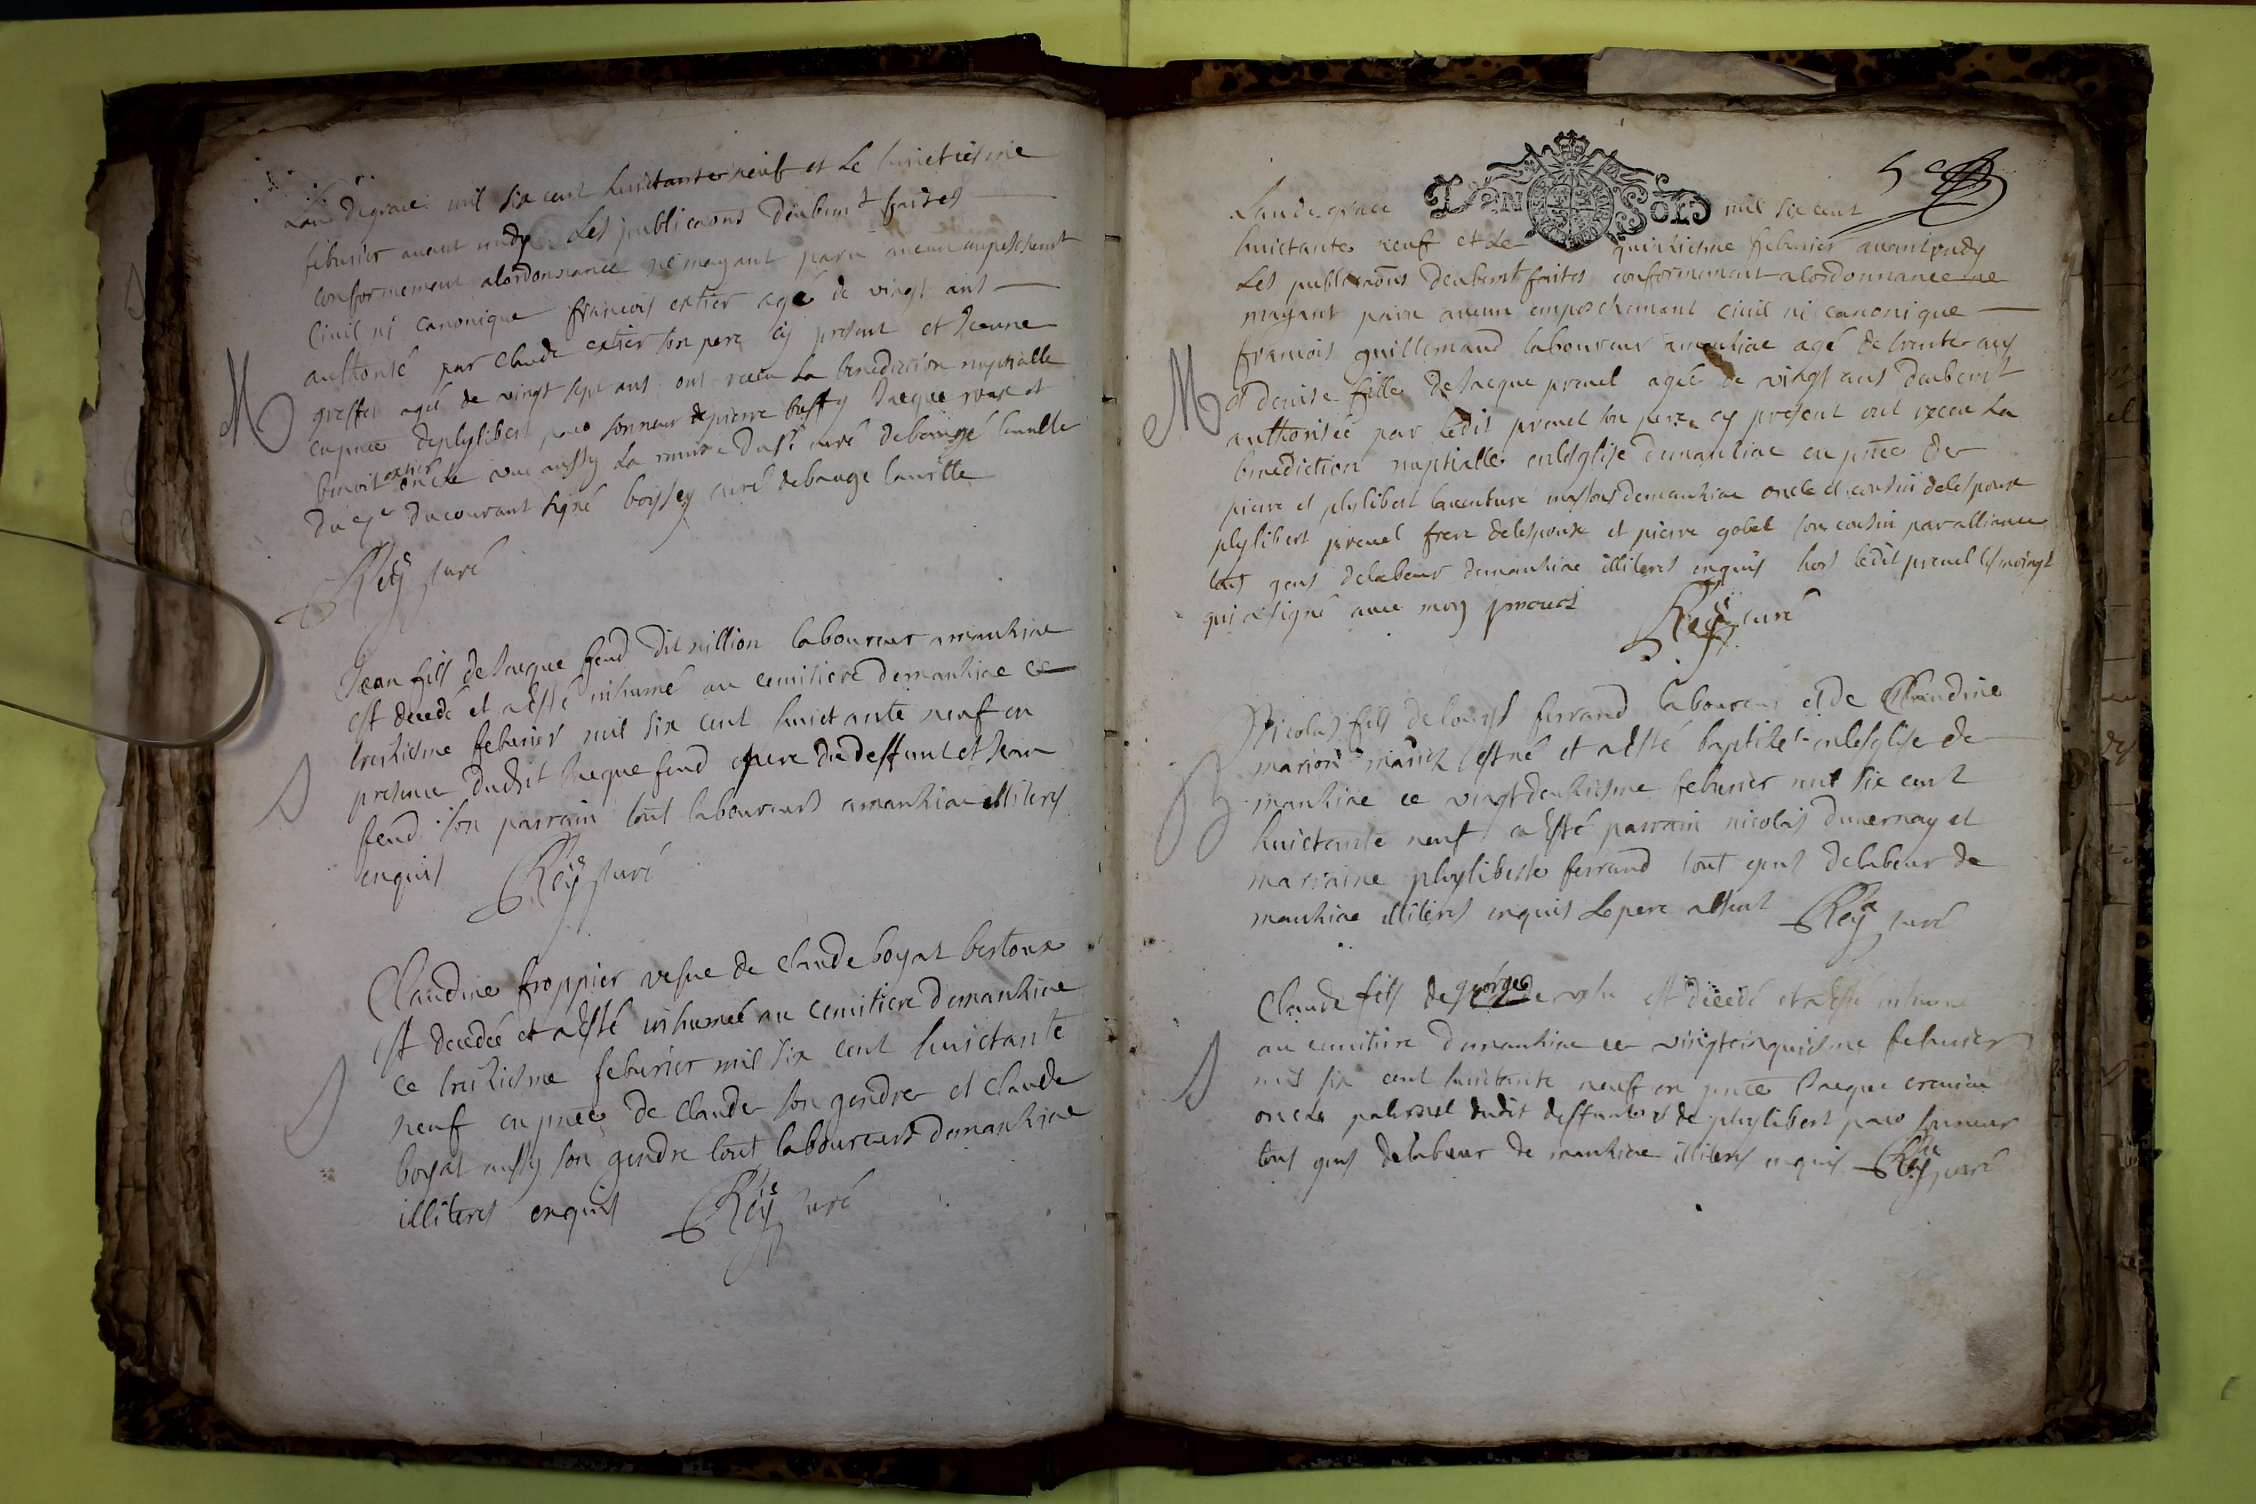 Lan de grace mil six cent huictante neuf et le huictiesme
febvrier avant midy Les publicaons deubment faites
conformement a lordonnance ne mayant paru aucun empeschement
Civil ni canonique francois extier agé de vingt ans
authorisé par Claude extier son pere cy present et Jeanne
M
greffet agée de vingt sept ans ont receu La benediction nuptialle
en pnce de phylibert paco sonneur de pierre buffy Jacque roux et
benoit extier oncle vue aussy La remise du Sr curé de baugé lauille
du 7e du courant signé boyssey curé de bauge lauille
Rey curé
Jean fils de Jacque feud dit million laboureur a manziac
est decedé et a esté inhumé au cemitiere de manziac ce
treiziesme febvrier mil six cent huictante neuf en
presence dudit Jacque feud pere du deffunt et Jean
feud son parrain tout laboureurs a manziac illiteres
enquis Rey curé
Claudine froppier vefue de Claude boyat bertoux
est decedée et a esté inhumée au cemitiere de manziac
ce treiziesme febvrier mil six cent huictante
neuf en pnce de Claude son gendre et Claude
boyat aussy son gendre tout laboureurs de manziac
illiteres enquis Rey curé
Lan de grace mil six cent
huictante neuf et Le quinziesme febvrier avant midy
Les publicaons deubemt faites conformement a lordonnance ne
mayant paru aucun empeschement civil ni canonique
francois guillemaud laboureur a manziac agé de trente ans
M
et denise fille de Jacque prevel agée de vingt ans deubemt
authorisée par ledit prevel son pere cy present ont receu La
benediction nuptialle en lesglise de manziac en pnce de
pierre et phylibert laventure de manziac oncle et cousin de lespoux
phylibert prevel frere de lespouse et pierre gobet son cousin par alliance
tout gens de labeur de manziac illiteres enquis hors ledit prevel
qui a signé avec moy
Rey curé
Nicolas fils de louys ferrand laboureur et de Claudine
marion est né et a esté baptizé en lesglise de
B
manziac ce vingt deuxiesme febvrier mil six cent
huictante neuf a esté parrain nicolas duvernay et
marraine phyliberte ferrand tout gens de labeur de
manziac illiteres enquis Le pere absent Rey curé
Claude fils de george est decedé et a esté inhumé
au cemitiere de manziac ce vingtcinquiesme febvrier
mil six cent huictante neuf en pnce Jacque
oncle paternel dudit deffunt et de phylibert paco sonneur
tous gens de labeur de manziac illiteres enquis Rey curé